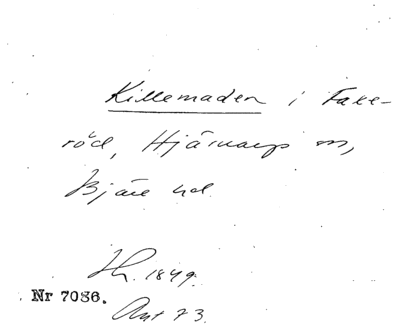 Killemaden i Faxe-
röd, Hjärnarps sn,
Bjäre hd.
1849.
Nr 7036.
Ant 73.